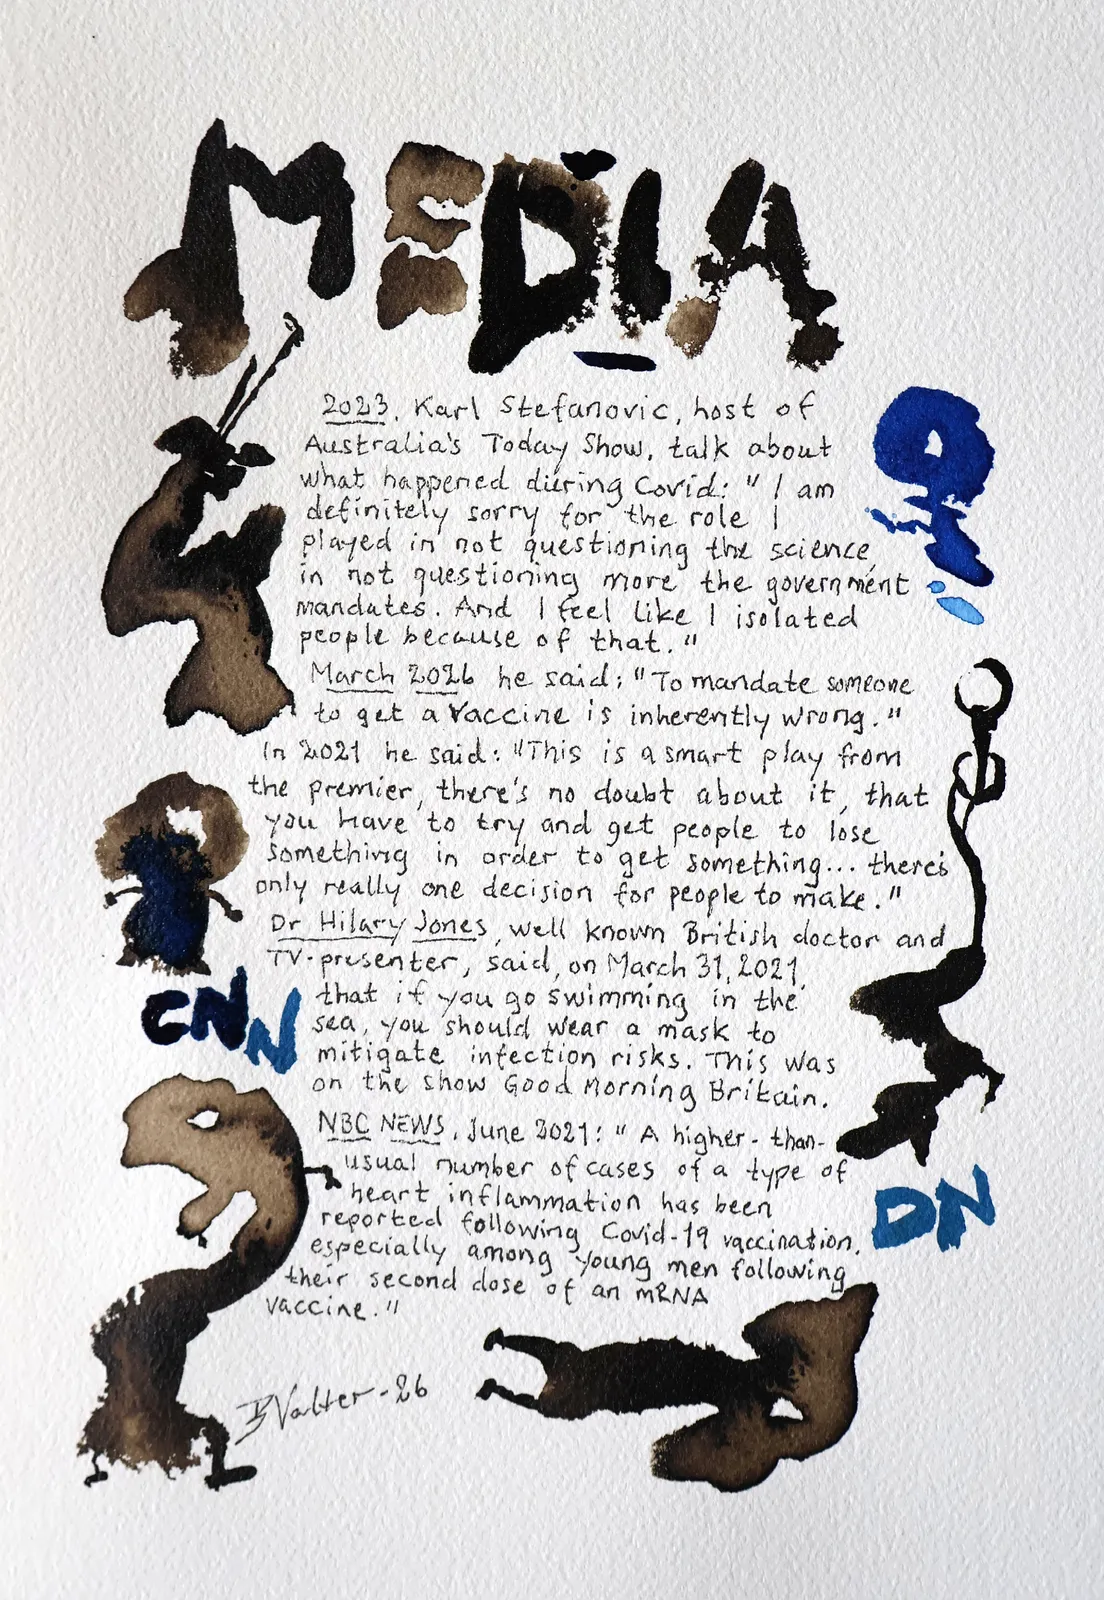 MEDIA
2023. Karl Stefanovic, host of
Australia's Today Show, talk about
what happened during Covid: "I am
definitely sorry for the role I
played in not questioning the science,
in not questioning more the government
mandates. And I feel like I isolated
people because of that."
March 2026 he said: "To mandate someone
to get a vaccine is inherently wrong."
In 2021 he said: "This is a smart play from
the premier, there's no doubt about it, that
you have to try and get people to lose
something in order to get something... there's
only really one decision for people to make."
Dr Hilary Jones, well known British doctor and
TV-presenter, said, on March 31, 2021,
that if you go swimming in the
sea, you should wear a mask to
mitigate infection risks. This was
on the show Good Morning Britain.
CNN
NBC NEWS, June 2021: "A higher-than-
usual number of cases of a type of
heart inflammation has been
reported following Covid-19 vaccination,
especially among young men following
their second dose of an mRNA
vaccine."
DN
B Valter-26